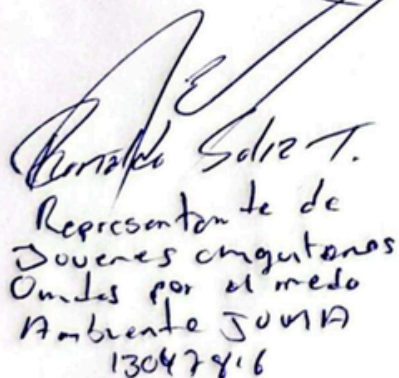 Ronaldo Soliz T.
Representante de
Jovenes chiquitanos
Unidos por el medio
Ambiente JUMA
13047816